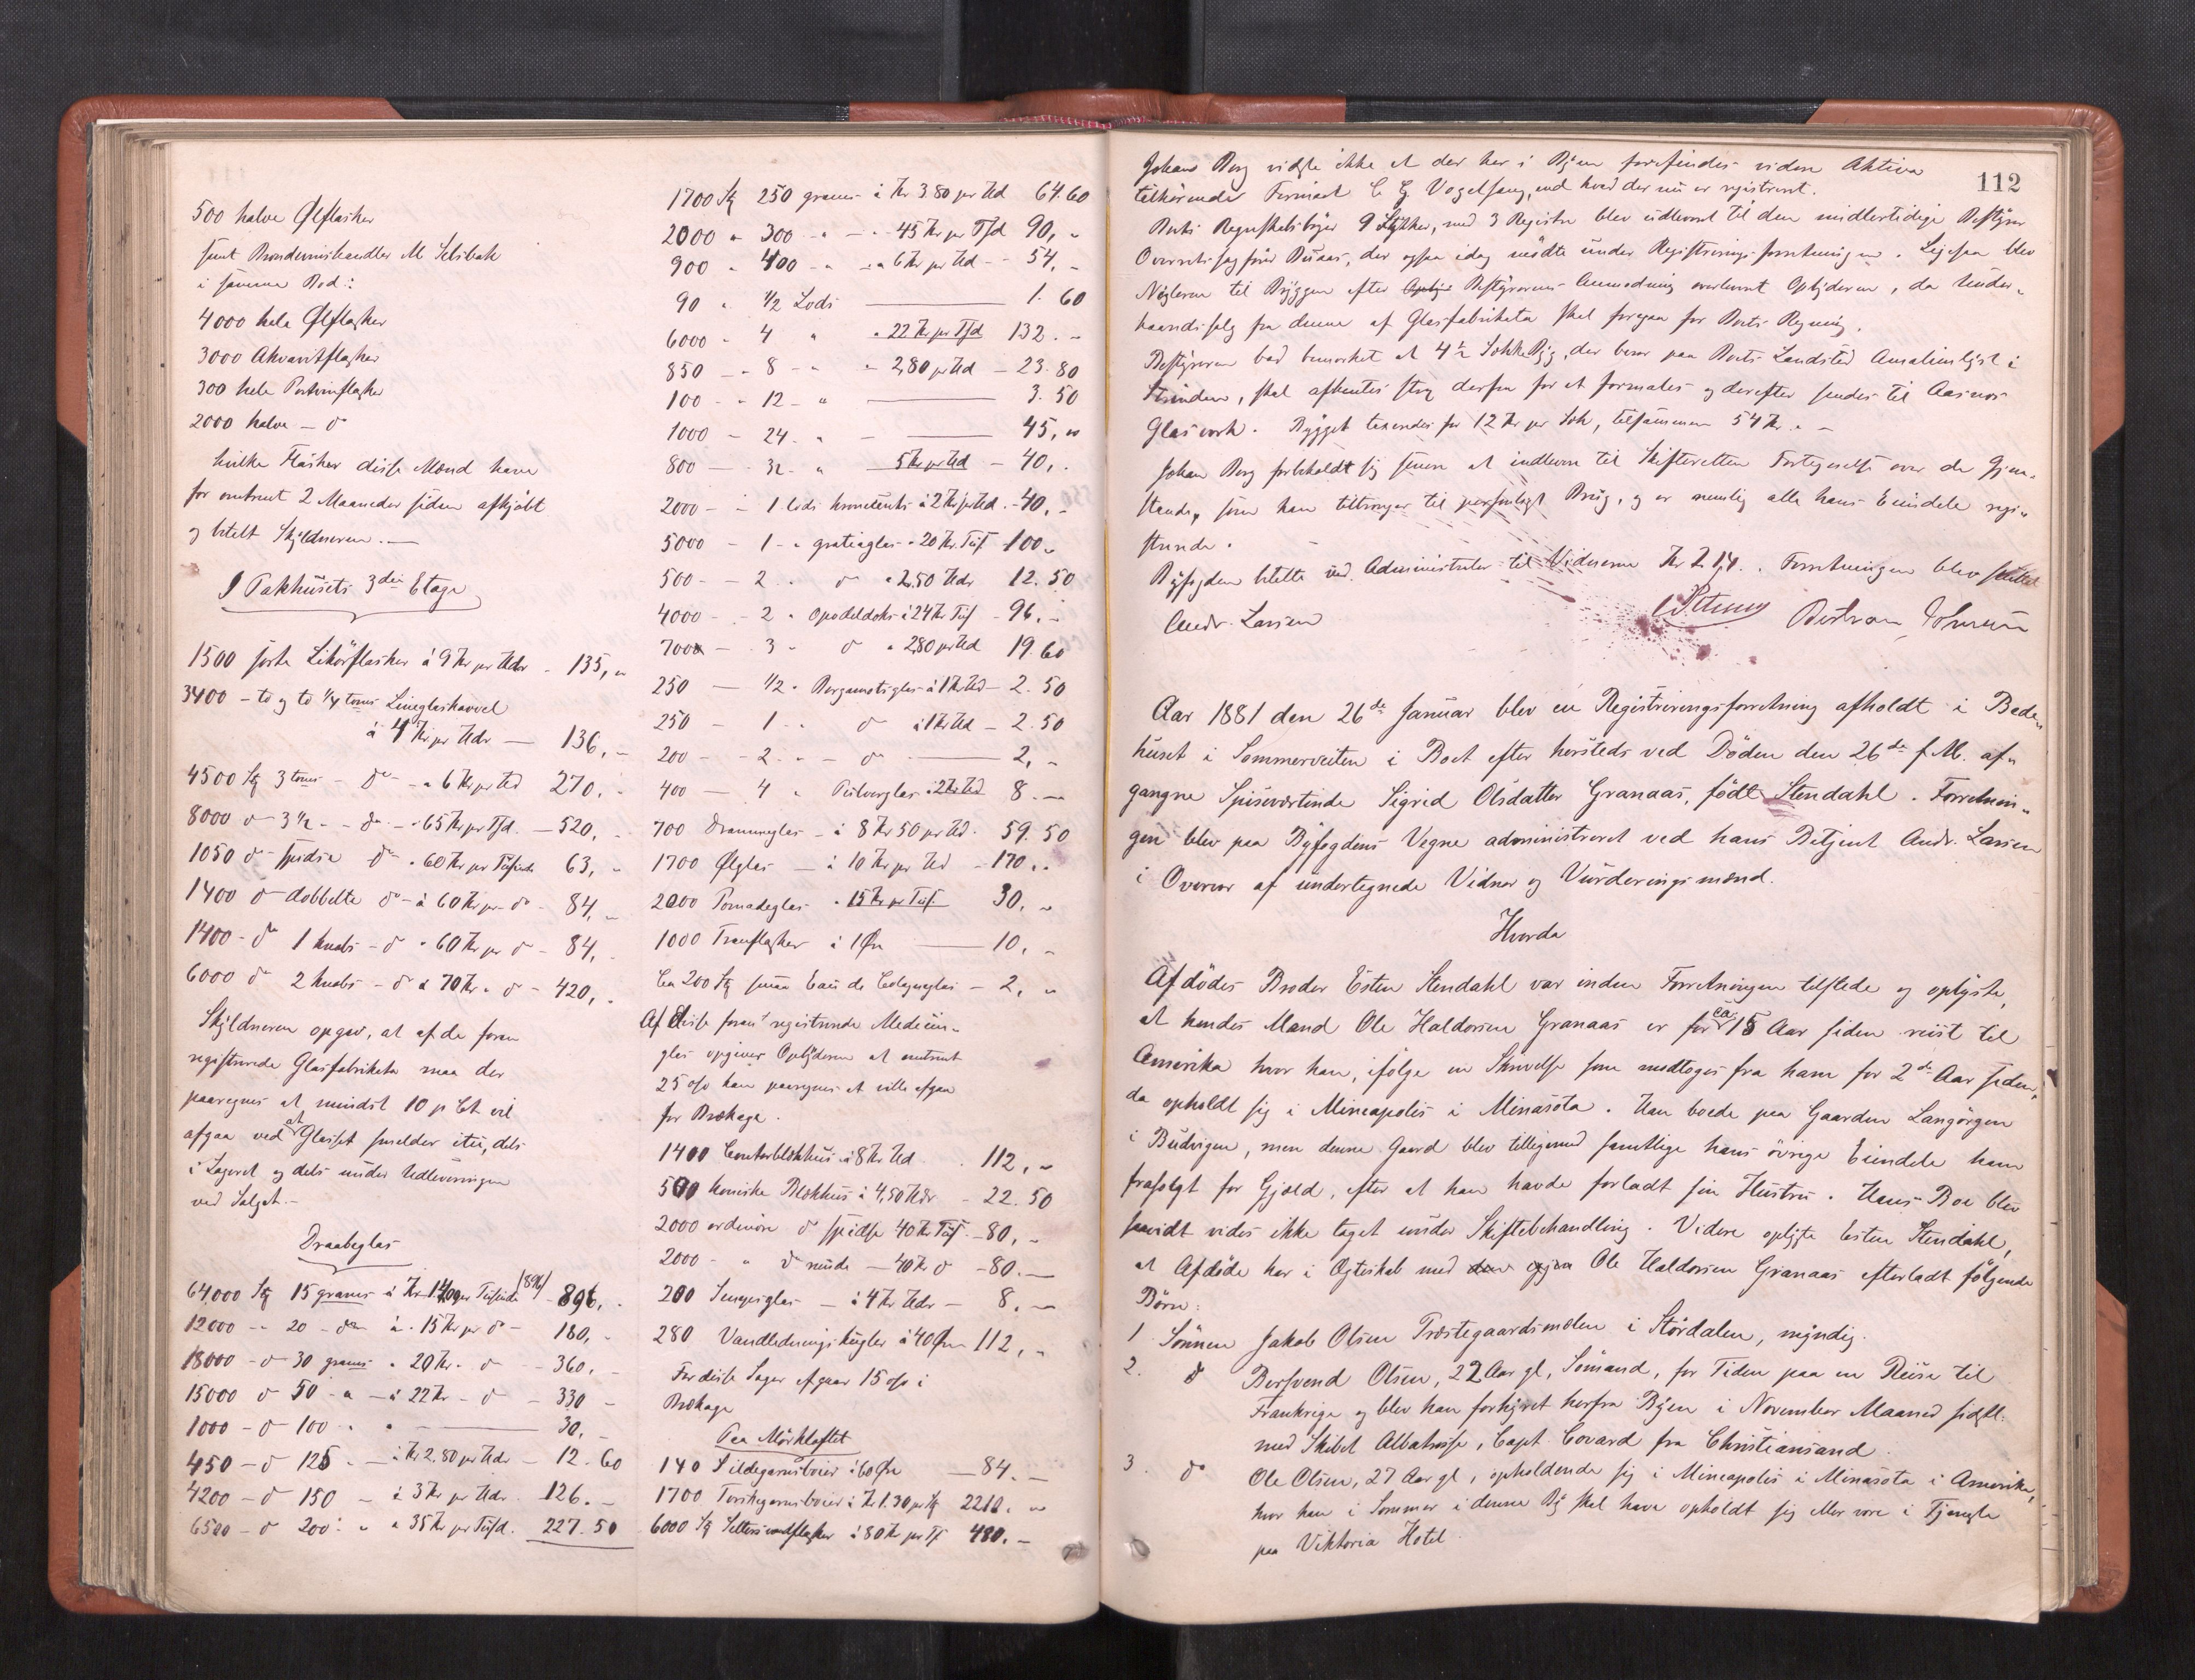 500 halve Ølflasker
samt Brændevinshandler M Selsbak
i samme Bod:
4000 hele Ølflasker
3000 Akvavitflasker
300 hele Portvinflasker
2000 halve – do
hvilke Flasker disse Mænd have
for omtrent 2 Maaneder siden afkjøbt
og betalt Skyldneren. —
I Pakhusets 3die Etage
1500 sorte Likörflasker à 9 Kr pr Hdr - 135, "
3400 – to og to 1/4 toms Lineglaskavvel
à 4 Kr pr Hdr — 136, -
4500 Stk 3 toms – do – " 6 Kr pr Hd 270. -
8000 do 3 1/2 - - do - " 65 Kr pr Tsd. — 520, -
1050 do spidse do " 60 Kr pr Tusinde 63, -
1400 do dobbelte do – à 60 Kr pr do - 84, -
1400 - do 1 knabs – do " 60 Kr pr do - 84, -
6000 do 2 knabs – do à 70 Kr " do - 420, -
Skyldneren opgav, at af de foran
registrerede Glasfabrikata maa der
paaregnes at mindst 10 p Ct vil
afgaa ved at Glasset smelder itu, dels
i Lageret og dels under Udleveringen
ved Salget. –
Draabeglas
64,000 Stk 15 grams à Kr 14,00 per Tusinde /896/ - 896, -
12000 - " 20 – do à - 15 Kr pr do - 180, -
18000 – do 30 grams " 20 Kr - do - 360, -
15000 do 50 - " – à 22 Kr - do - 330 -
1000 – do 100 " " ——— 30, -
450 – do 125 " — à Kr 2.80 pr Hdr – 12. 60
4200 – do 150 – à 3 Kr pr Hdr. 126. -
6500 – do 200 " " à 35 Kr pr Tusd. 227. 50
1700 Stk 250 grams à Kr 3.80 pr Hd 64.60
2000 " 300 - " – " 45 Kr pr Tsd 90, "
900 " 400 - " – " 6 Kr pr Hd - - 54, -
90 " 1/2 Lods ——— 1. 60
6000 - 4 " " 22 Kr pr Tsd 132. -
850 – " 8 - " " 2,80 pr Hd – 23. 80
100 - " 12 – " ——— 3. 50
1000 – 24 - " – ——— 45, "
800 — 32 - " 5 Kr pr Hd – 40, -
2000 – – 1 Lods kronetents à 2 Kr pr Hd. - 40, -
5000 – 1 - " gratiaglas " 20 Kr. Tus 100 "
500 - – 2 - - do " 2,50 Hdr 12. 50
4000 - – 2 " Opodeldoks à 24 Kr Tus - 96. -
700 – 3 - do " 2,80 pr Hd 19. 60
250 — 1/2 " Bergamotiglas à 1 Kr Hd – 2. 50
250 – 1 - - do à 1 Kr Hd – 2. 50
200 – - 2 - " – do ——— 2, -
400 — 4 " Pulverglas à 2 Kr Hd 8. —
700 Dramneglas – à 8 Kr 50 pr Hd. 59. 50
1700 Ølglas — à 10 Kr pr Hd – 170. "
2000 Pomadeglas " 15 Kr pr Tus 30, "
1000 Tranflasker à 1 Øre ——— 10, -
Ca 200 Stk smaa Eau de Cologneglas – 2, "
Af disse foran registrerede Medicin-
glas opgiver Opbyderen at omtrent
25 o/o kan paaregnes at ville afgaa
for Brækage.
1400 Contorblækhus à 8 Kr Hd 112, "
500 koniske Blækhus à 4,50 Hdr – 22. 50
2000 ordinære do spidse 40 Kr Tus – 80, -
2000 - " do runde — 40 Kr do – 80. —
200 Senepsglas — à 4 Kr Hdr – 8, —
280 Vandlednings kugler à 40 Øre 112, -
For disse Sager afgaar 15 o/o i
Brækage
Paa Mörkloftet
140 Sildegarnsboier à 60 Øre — 84. —
1700 Torskegarnsboier à Kr 1.30 pr Stk 2210. "
6000 Stk Seltersvandflasker à 80 Kr pr Ts 480. –
112
Johans Berg vidste ikke at der her i Byen forefindes videre Aktiva
tilhørende Firmaet C. G. Vogelsang, end hvad der nu er registreret.
Boets Regnskabsbøger 9 Stykker, med 3 Registre blev udleveret til den midlertidige Bestyrer
Overretssagfører Buaas, der ogsaa idag mødte under Registreringsforretningen. Ligesaa blev
Nøglerne til Bryggen efter Bestyrerens Anmodning overleveret Opbyderen, da Under-
haandssalg fra denne af Glasfabrikata skal foregaa for Boets Regning.
Bestyreren bad bemærket at 4 1/2 Sække Byg, der beror paa Boets Landsted Amalienlyst i
Strinden, skal afhentes strax derfra for at formales og derefter sendes til Aasnes
Glasværk. Bygget taxeredes for 12 Kr pr Sæk, tilsammen 54 Kr. " –
Johan Berg forbeholdt sig senere at indlevere til Skifteretten Fortegnelse over de Gjen-
stande, som han tiltrænger til personligt Brug, og er nemlig alle hans Eiendele regi-
strerede.
Byfogden betalte ved Administrator til Vidnerne Kr 2.14. Forretningen blev sluttet
Andr. Larsen
Aar 1881 den 26de Januar blev en Registreringsforretning afholdt i Bede-
huset i Sommerveiten i Boet efter hersteds ved Döden den 26de f. M. af-
gangne Spiseværtinde Sigrid Olsdatter Granaas, födt Stendahl. Forretnin-
gen blev paa Byfogdens Vegne administreret ved hans Betjent Andr. Larsen
i Overvær af undertegnede Vidner og Vurderingsmænd.
Hvorda
Afdödes Broder Esten Stendahl var inden Forretningen tilstede og oplyste,
at hendes Mand Ole Haldorsen Granaas er for ca. 15 Aar siden reist til
Amerika hvor han, ifölge en Skrivelse som modtoges fra ham for 2de Aar siden,
da opholdt sig i Mineapolis i Minasota. Han boede paa Gaarden Langörgen
i Budvigen, men denne Gaard blev tilligemed samtlige hans övrige Eiendele ham
frasolgt for Gjæld, efter at han havde forladt sin Hustru. Hans Boe blev
saavidt vides ikke taget under Skiftebehandling. Videre oplyste Esten Stendahl,
at Afdöde har i Ægteskab med Ole Haldorsen Granaas efterladt fölgende
Börn:
1. Sönnen Jakob Olsen Præstegaardsmolen i Stördalen, myndig.
2. do Bersvend Olsen, 22 Aar gl, Sömand, for Tiden paa en Reise til
Frankrige og blev han forhyret herfra Byen i November Maaned sidstl.
med Skibet Albatrosse, Capt. Covard fra Christiansand.
3. do Ole Olsen, 27 Aar gl, opholdende sig i Mineapolis i Minasota i Amerika,
hvor han i Sommer i denne By skal have opholdt sig eller være i Tjeneste
paa Viktoria Hotel.